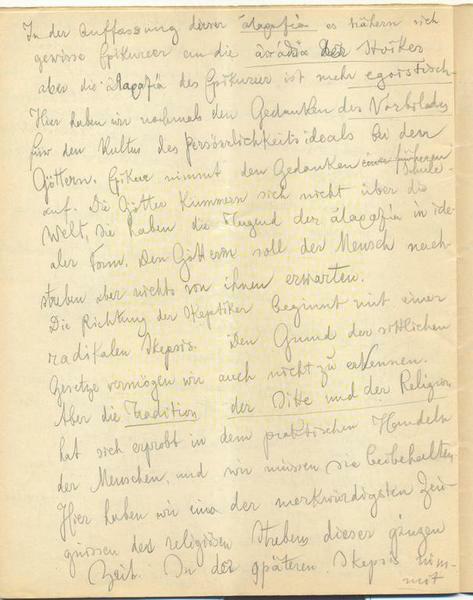 In der Auffassung dieser ἀταραξία es nähern sich
gewisse Epikureer an die der Stoiker
aber die ἀταραξία des Epikureer ist mehr egoistisch.
Hier haben wir nochmals den Gedanken des Vorbildes
für den Kultus des Persönlichkeitsideals bei den
Göttern. Epikur nimmt den Gedanken früheren Schule
auf. Die Götter kümmern sich nicht über die
Welt, sie haben die Tugend der ἀταραξία in ide-
aler Form. Den Göttern soll der Mensch nach-
streben aber nichts von ihnen erwarten.
Die Richtung der Skeptiker beginnt mit einer
radikalen Skepsis. Den Grund der sittlichen
Gesetze vermögen wir auch nicht zu erkennen.
Aber die Tradition der Sitte und der Religion
hat sich erprobt in dem praktischen Handeln
der Menschen, und wir müssen sie beibehalten
Hier haben wir eins der merkwürdigsten Zeu-
gnissen des religiösen Strebens dieser gänzen
Zeit. In der späteren Skepsis nim-
mt